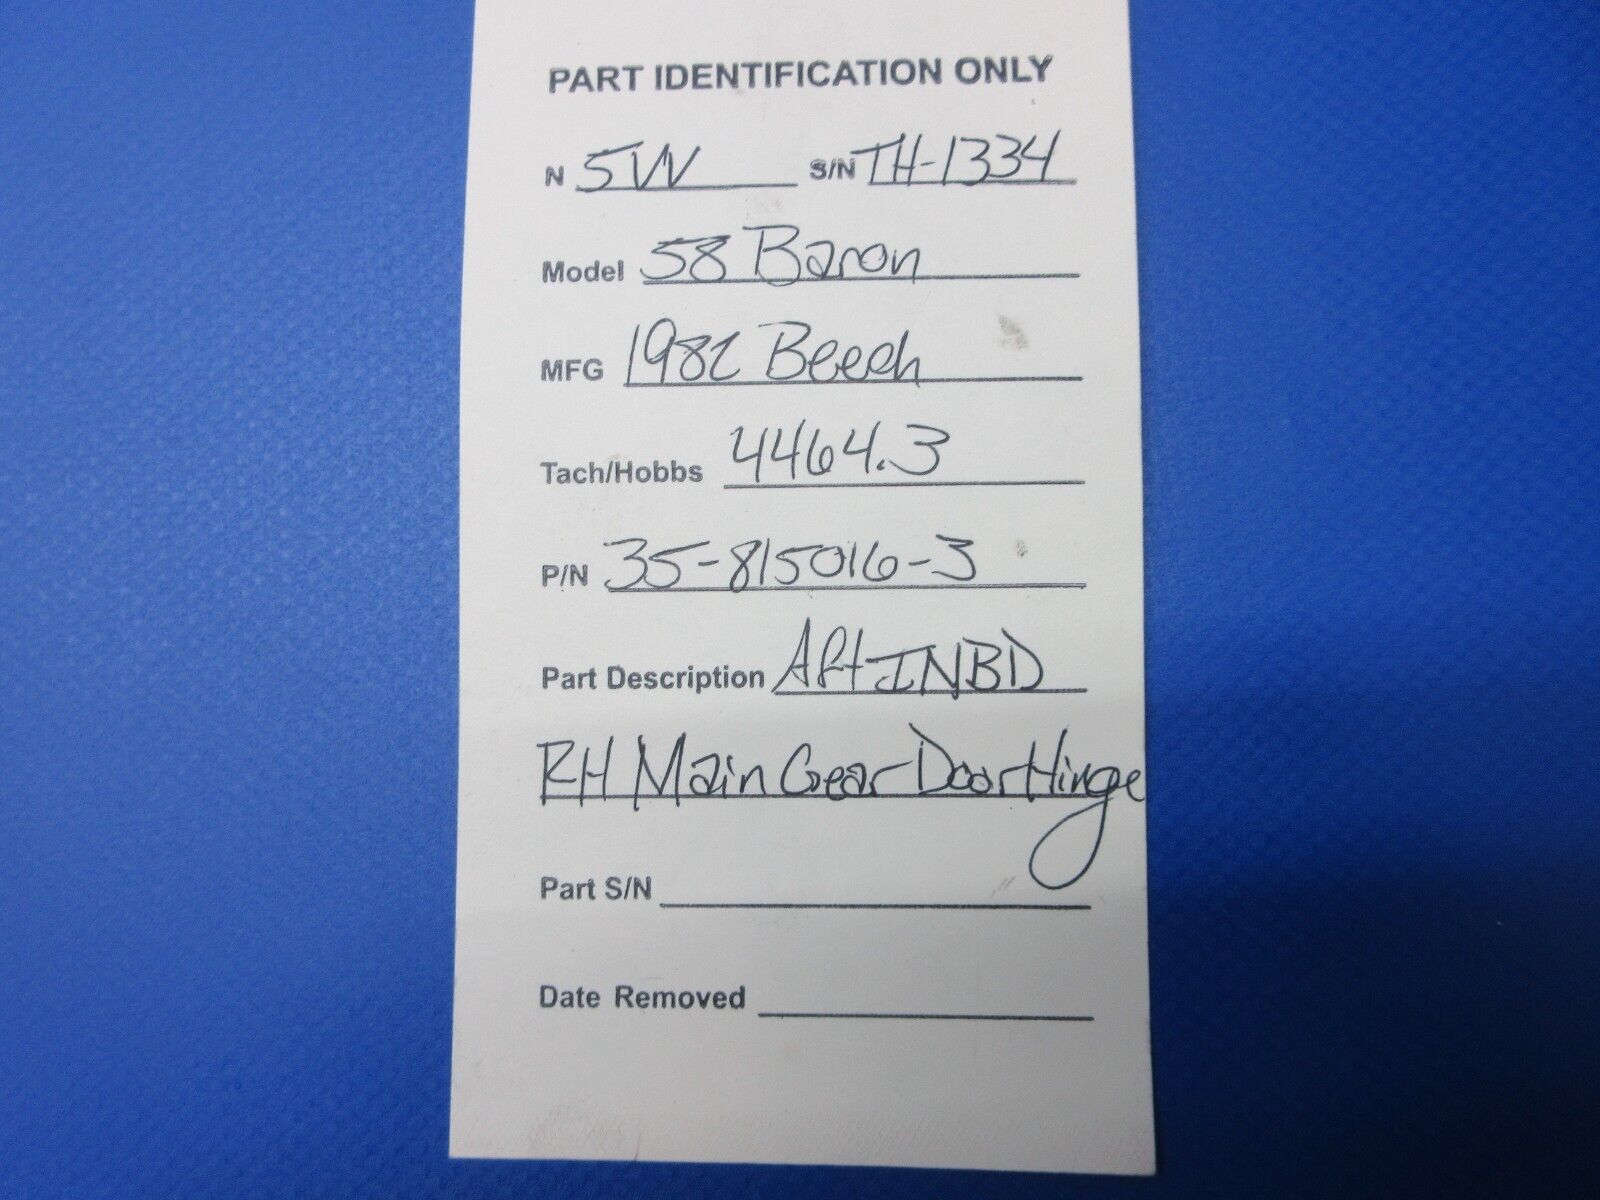 PART IDENTIFICATION ONLY
N 5VV S/N TH-1334
Model 58 Baron
MFG 1982 Beech
Tach/Hobbs 4464.3
P/N 35-815016-3
Part Description Aft INBD
RH Main Gear Door Hinge
Part S/N
Date Removed